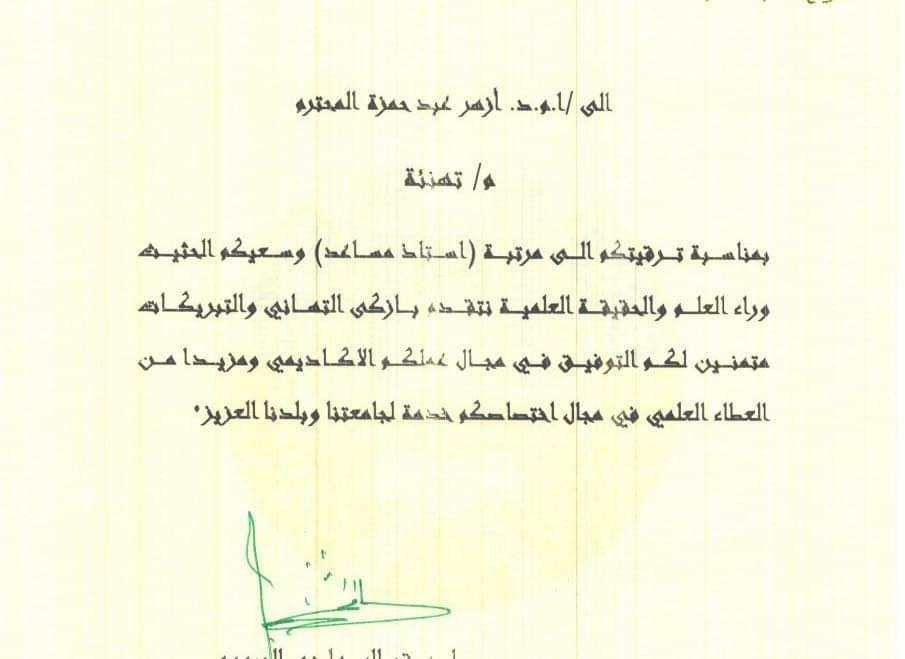 الى /ا.م.د. أزهر عبد حمزة المحترم
م/ تهنئة
بمناسبة ترقيتكم الى مرتبة (استاذ مساعد) وسعيكم الحثيث
وراء العلم والحقيقة العلمية نتقدم بازكى التهاني والتبريكات
متمنين لكم التوفيق في مجال عملكم الاكاديمي ومزيدا من
العطاء العلمي في مجال اختصاصكم خدمة لجامعتنا وبلدنا العزيز.